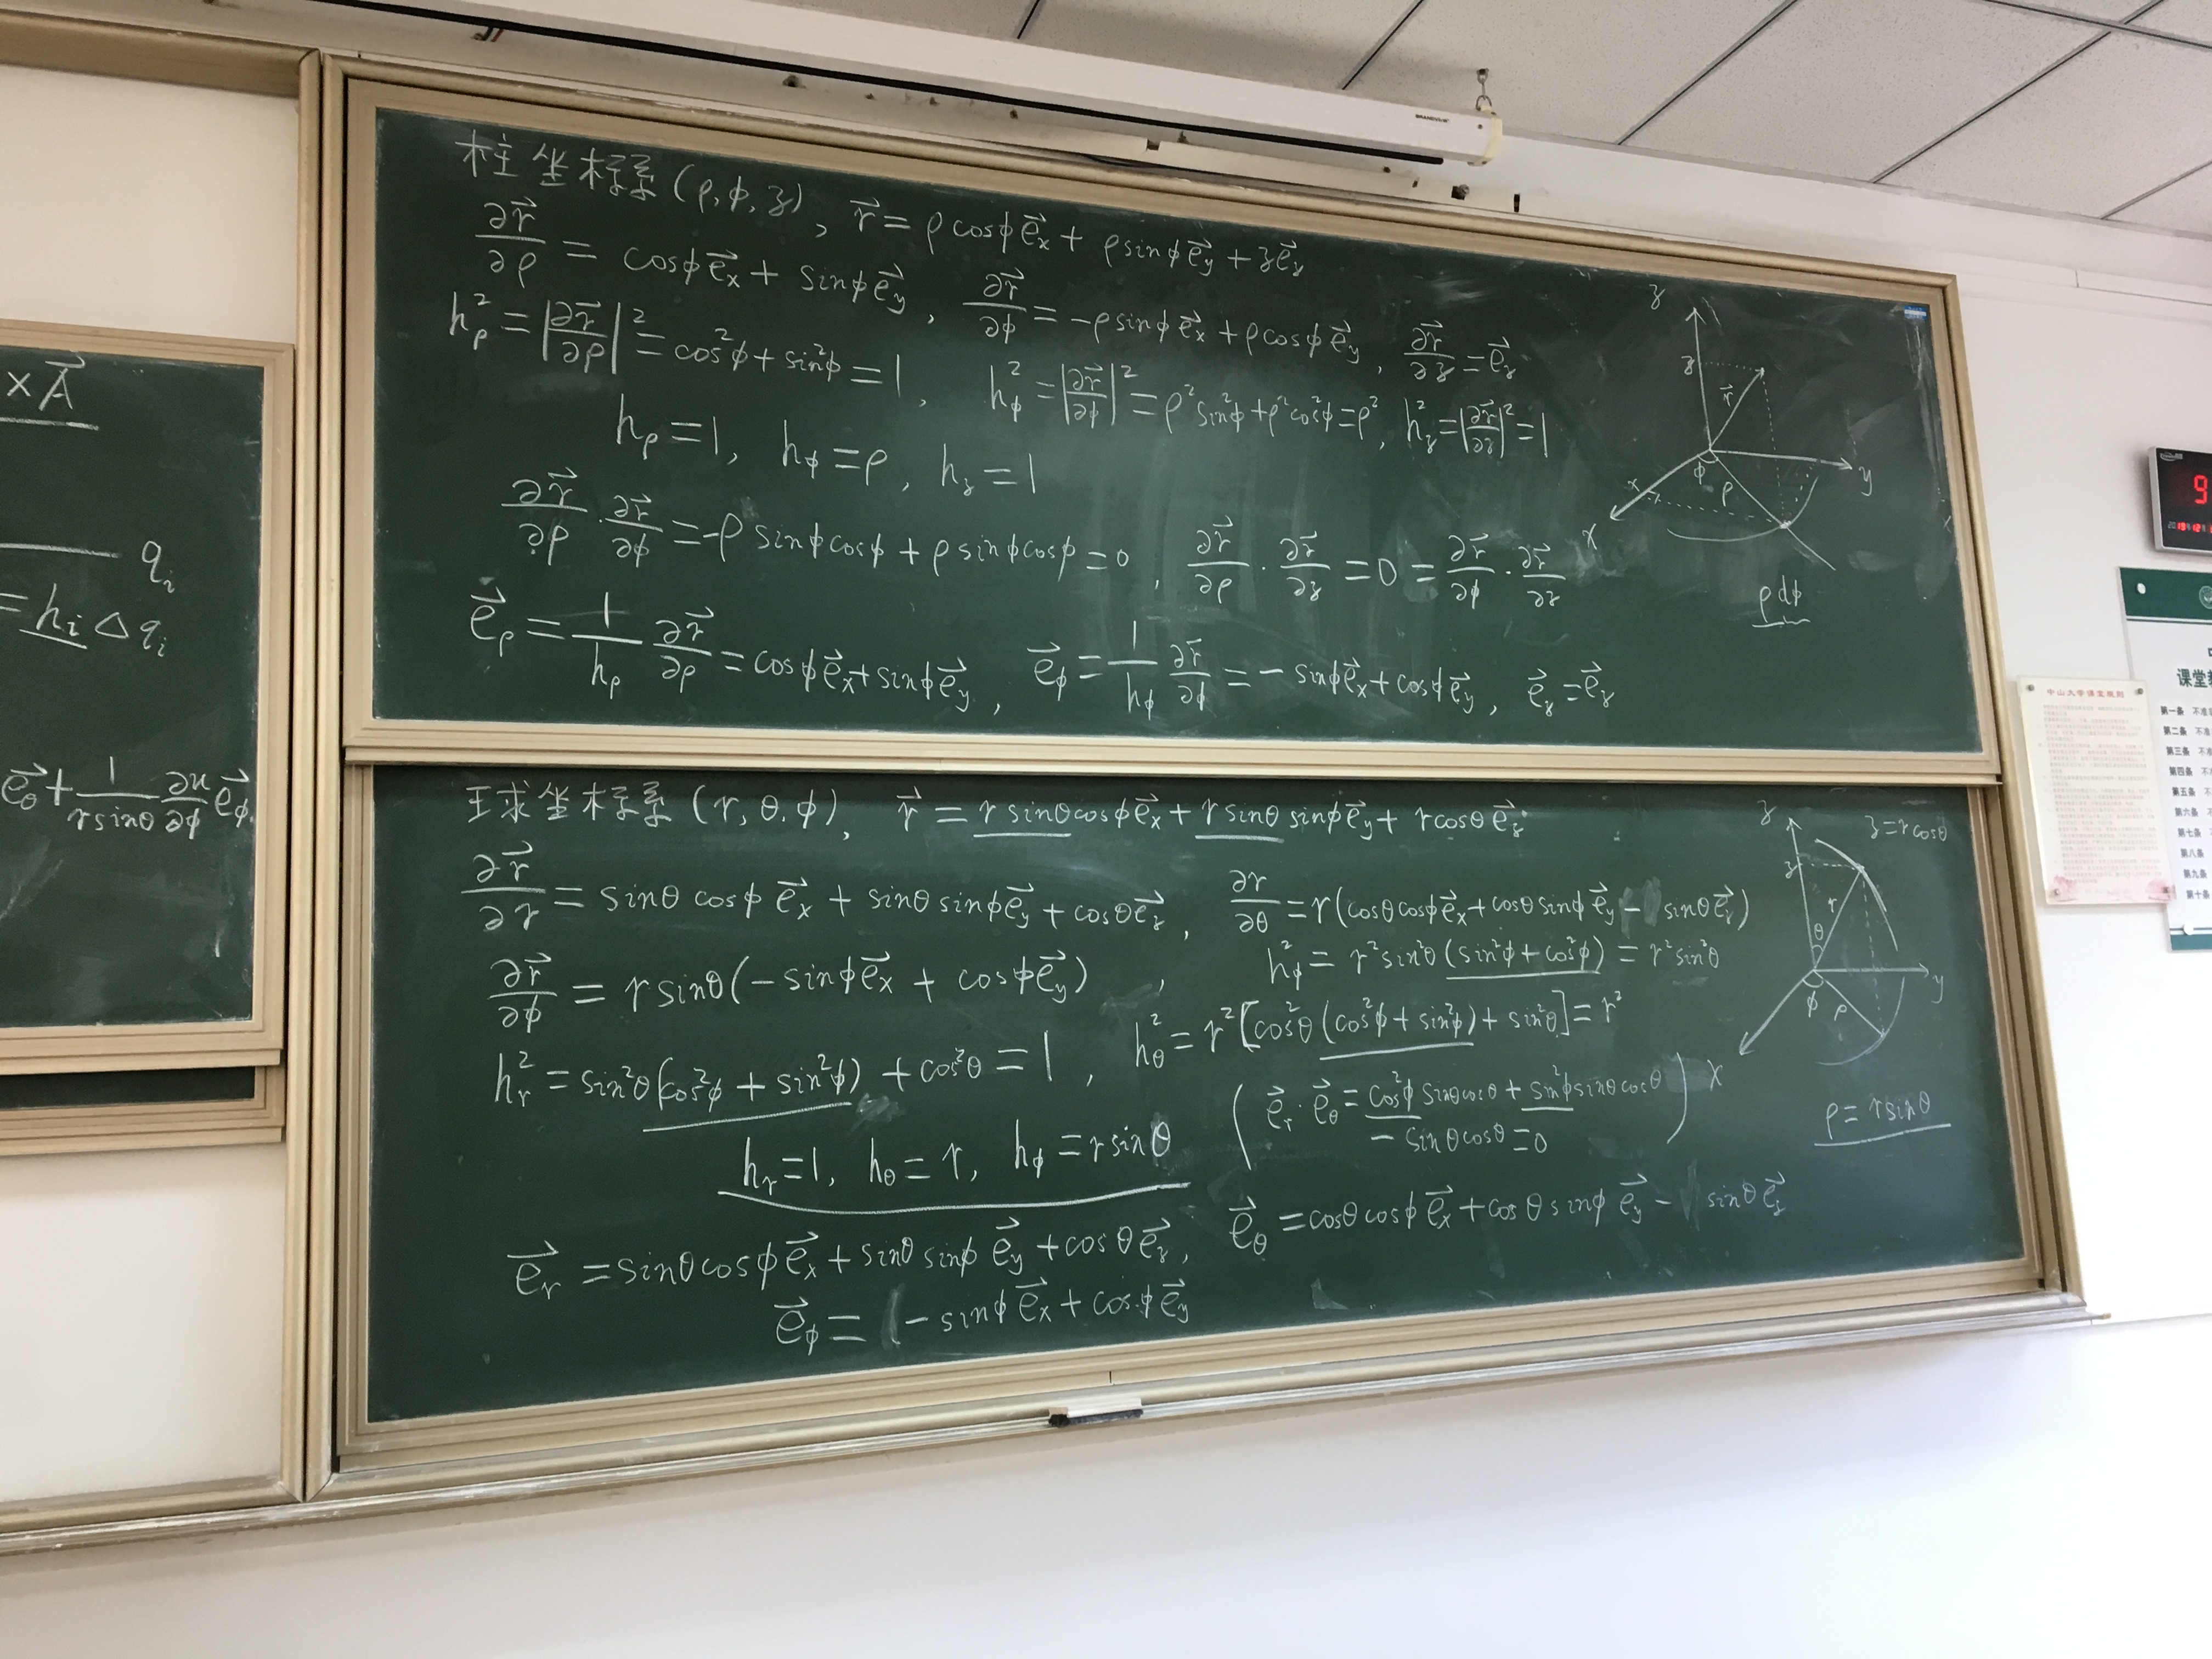 ×A⃗
qᵢ
= hᵢ Δqᵢ
e⃗_θ + 1/(r sinθ) ∂u/∂φ e⃗_φ.
柱坐标系 (ρ, φ, z), r⃗ = ρcosφe⃗_x + ρsinφe⃗_y + ze⃗_z
∂r⃗/∂ρ = cosφe⃗_x + sinφe⃗_y, ∂r⃗/∂φ = -ρsinφe⃗_x + ρcosφe⃗_y, ∂r⃗/∂z = e⃗_z
h_ρ² = |∂r⃗/∂ρ|² = cos²φ + sin²φ = 1, h_φ² = |∂r⃗/∂φ|² = ρ²sin²φ + ρ²cos²φ = ρ², h_z² = |∂r⃗/∂z|² = 1
h_ρ = 1, h_φ = ρ, h_z = 1
∂r⃗/∂ρ · ∂r⃗/∂φ = -ρ sinφcosφ + ρ sinφcosφ = 0, ∂r⃗/∂ρ · ∂r⃗/∂z = 0 = ∂r⃗/∂φ · ∂r⃗/∂z
e⃗_ρ = 1/h_ρ ∂r⃗/∂ρ = cosφe⃗_x + sinφe⃗_y, e⃗_φ = 1/h_φ ∂r⃗/∂φ = -sinφe⃗_x + cosφe⃗_y, e⃗_z = e⃗_z
z
z
r⃗
y
φ ρ
x
x
ρdφ
球坐标系 (r, θ, φ), r⃗ = r sinθcosφe⃗_x + r sinθ sinφe⃗_y + r cosθ e⃗_z
∂r⃗/∂r = sinθ cosφ e⃗_x + sinθ sinφe⃗_y + cosθe⃗_z, ∂r/∂θ = r(cosθcosφe⃗_x + cosθsinφe⃗_y - sinθe⃗_z)
∂r⃗/∂φ = r sinθ(-sinφe⃗_x + cosφe⃗_y), h_φ² = r²sin²θ(sin²φ + cos²φ) = r²sin²θ
h_r² = sin²θ(cos²φ + sin²φ) + cos²θ = 1, h_θ² = r²[cos²θ(cos²φ + sin²φ) + sin²θ] = r²
(e⃗_r · e⃗_θ = cos²φ sinθcosθ + sin²φ sinθcosθ
- sinθcosθ = 0)
h_r = 1, h_θ = r, h_φ = r sinθ
e⃗_r = sinθcosφe⃗_x + sinθ sinφ e⃗_y + cosθe⃗_z, e⃗_θ = cosθcosφ e⃗_x + cosθ sinφ e⃗_y - sinθ e⃗_z
e⃗_φ = (-sinφe⃗_x + cosφe⃗_y
z
z = r cosθ
z
r
θ
y
φ ρ
x
ρ = r sinθ
9
中山大学课堂规则
课堂
第一条 不准
第二条 不准
第三条 不
第四条 不
第五条 不
第六条
第七条
第八条
第九条
第十条